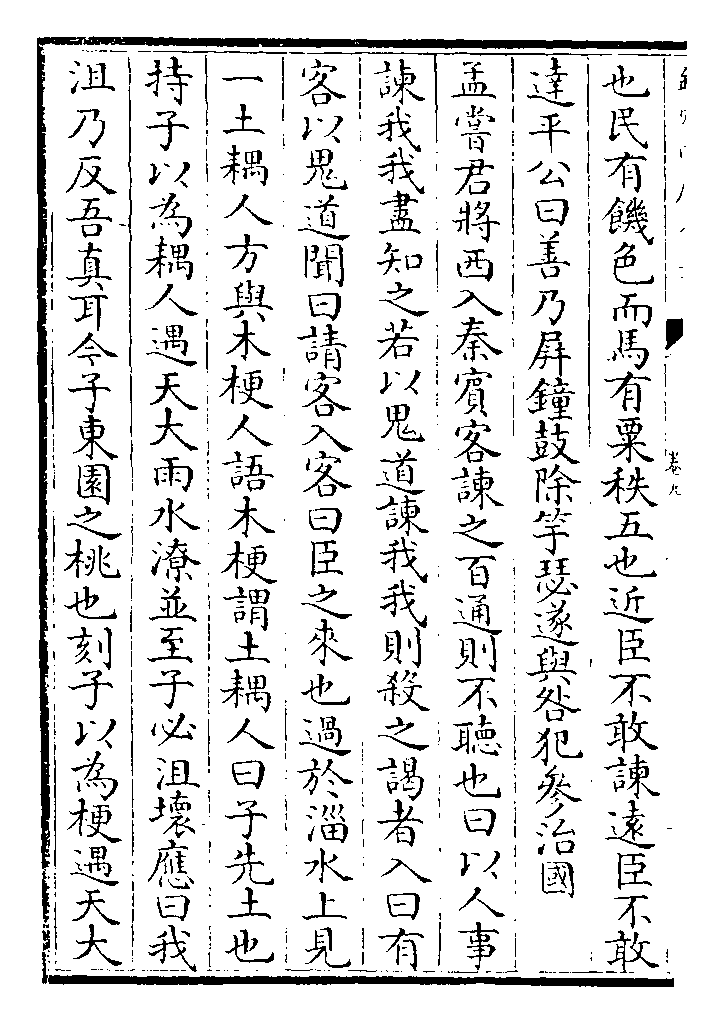 也民有饑色而馬有粟秩五也近臣不敢諫遠臣不敢
達平公曰善乃屏鐘鼓除竽瑟遂與咎犯參治國
孟嘗君將西入秦賓客諫之百通則不聽也曰以人事
諫我我盡知之若以鬼道諫我我則殺之謁者入曰有
客以鬼道聞曰請客入客曰臣之來也過於淄水上見
一土耦人方與木梗人語木梗謂土耦人曰子先土也
持子以為耦人遇天大雨水潦並至子必沮壞應曰我
沮乃反吾真耳今子東園之桃也刻子以為梗遇天大
卷九